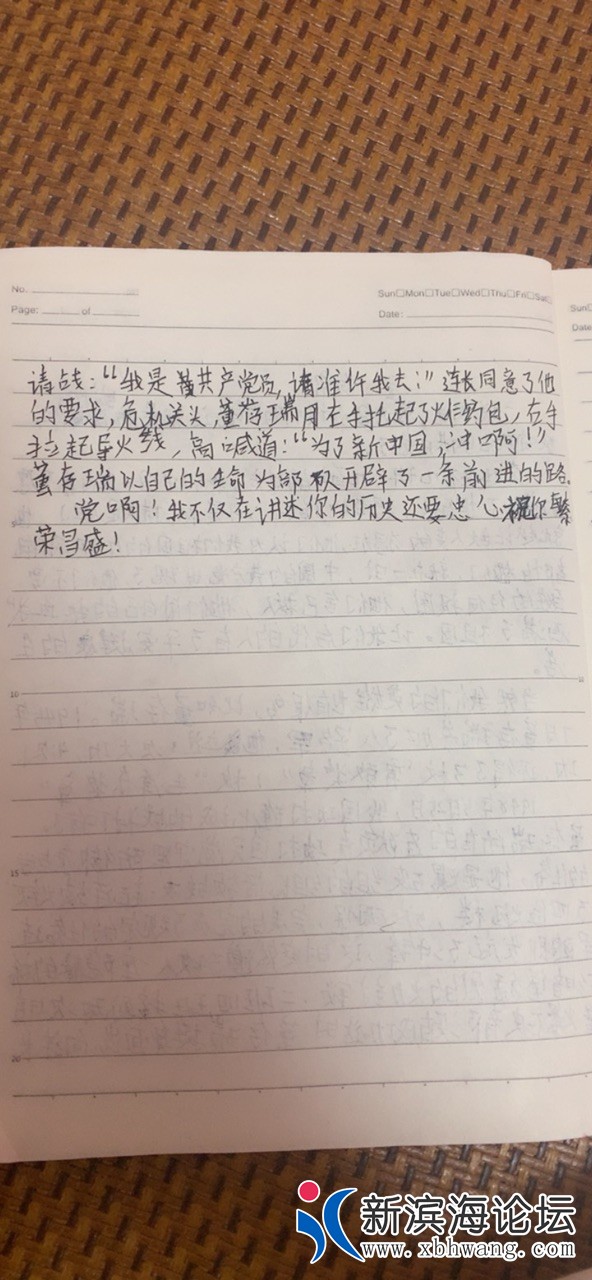 No.
Page: of
Sun□Mon□Tue□Wed□Thu□Fri□Sat□
Date:
Sun□
Date
请战：“我是共产党员，请准许我去！”连长同意了他
的要求，危机关头，董存瑞用左手托起了炸药包，右手
拉起导火线，高喊道：“为了新中国，冲啊！”
董存瑞以自己的生命为部队开辟了一条前进的路.
党啊！我不仅在讲述你的历史还要忠心祝你繁
荣昌盛！
10
15
20
新滨海论坛
www.xbhwang.com